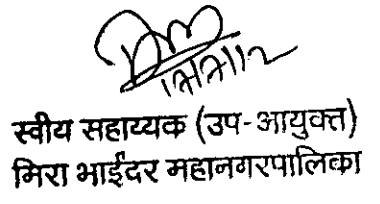 स्वीय सहाय्यक (उप-आयुक्त)
मिरा भाईंदर महानगरपालिका